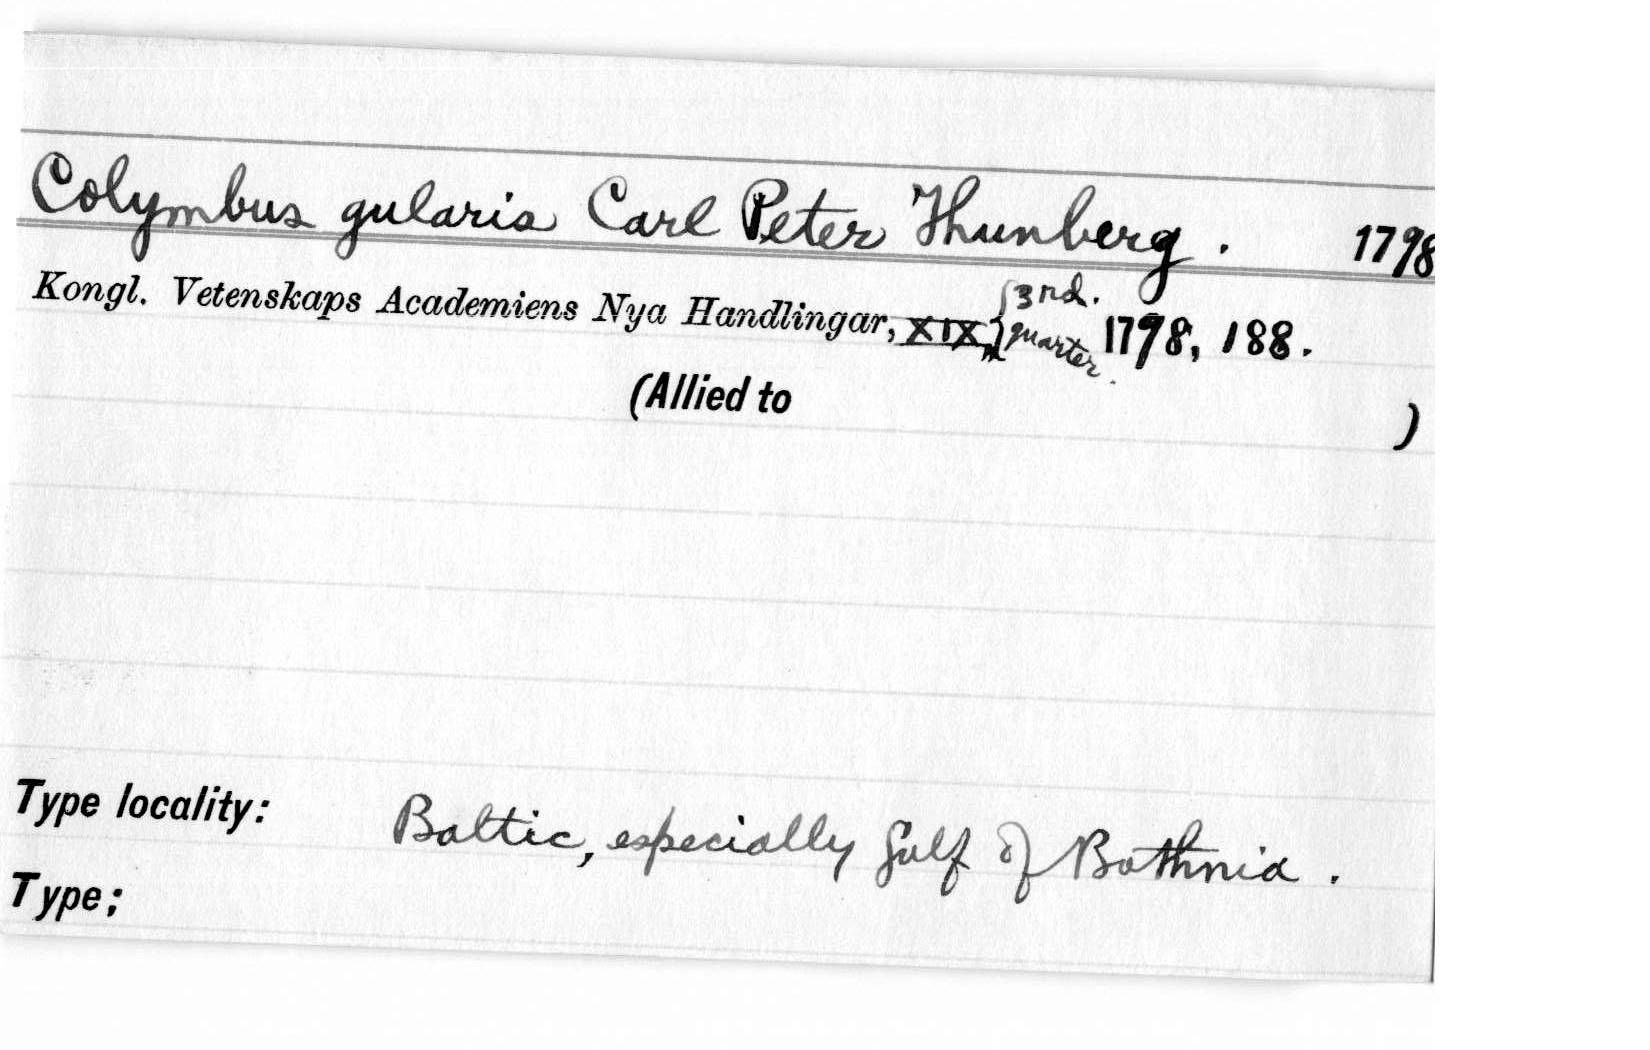 Colymbus gularis Carl Peter Thunberg. 1798
Kongl. Vetenskaps Academiens Nya Handlingar, XIX, 3rd. quarter. 1798, 188.
(Allied to )
Type locality: Baltic, especially Gulf of Bothnia.
Type;